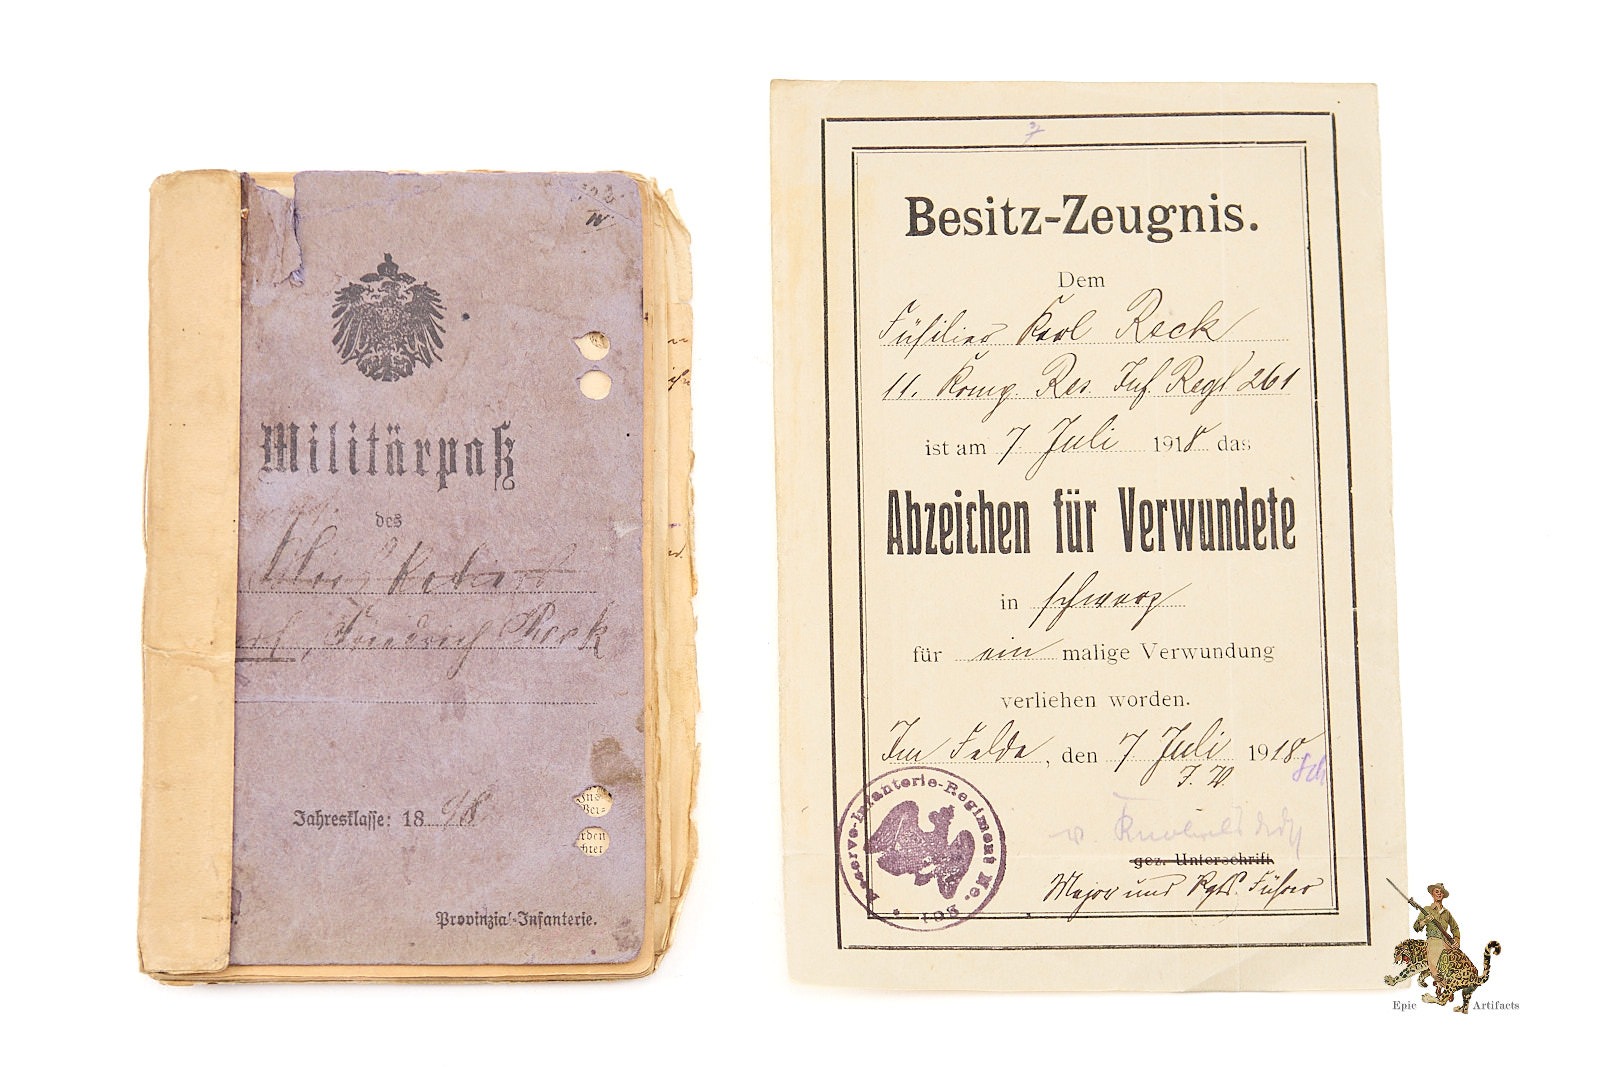 Militärpaß
des
Friedrich Reck
Jahresklasse: 18 98
Provinzial-Infanterie.
Besitz-Zeugnis.
Dem
Füsilier Karl Reck
11. Komp. Res. Inf. Regt 261
ist am 7 Juli 1918 das
Abzeichen für Verwundete
in schwarz
für ein malige Verwundung
verliehen worden.
Im Felde, den 7 Juli 1918
I. V.
gez. Unterschrift
Major und Rgts. Führer
Reserve-Infanterie-Regiment No. 261
Epic Artifacts